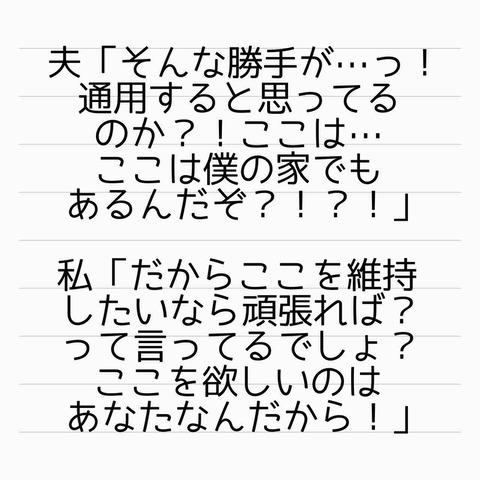 夫「そんな勝手が…っ！
通用すると思ってる
のか？！ここは…
ここは僕の家でも
あるんだぞ？！？！」
私「だからここを維持
したいなら頑張れば？
って言ってるでしょ？
ここを欲しいのは
あなたなんだから！」